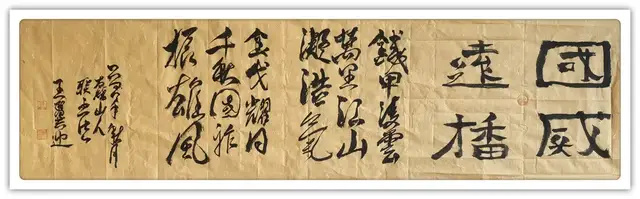 國威
遠播
鐵甲凌雲
萬里江山
凝浩氣
金戈耀日
千秋國祚
振雄風
年秋月
山人
王迎